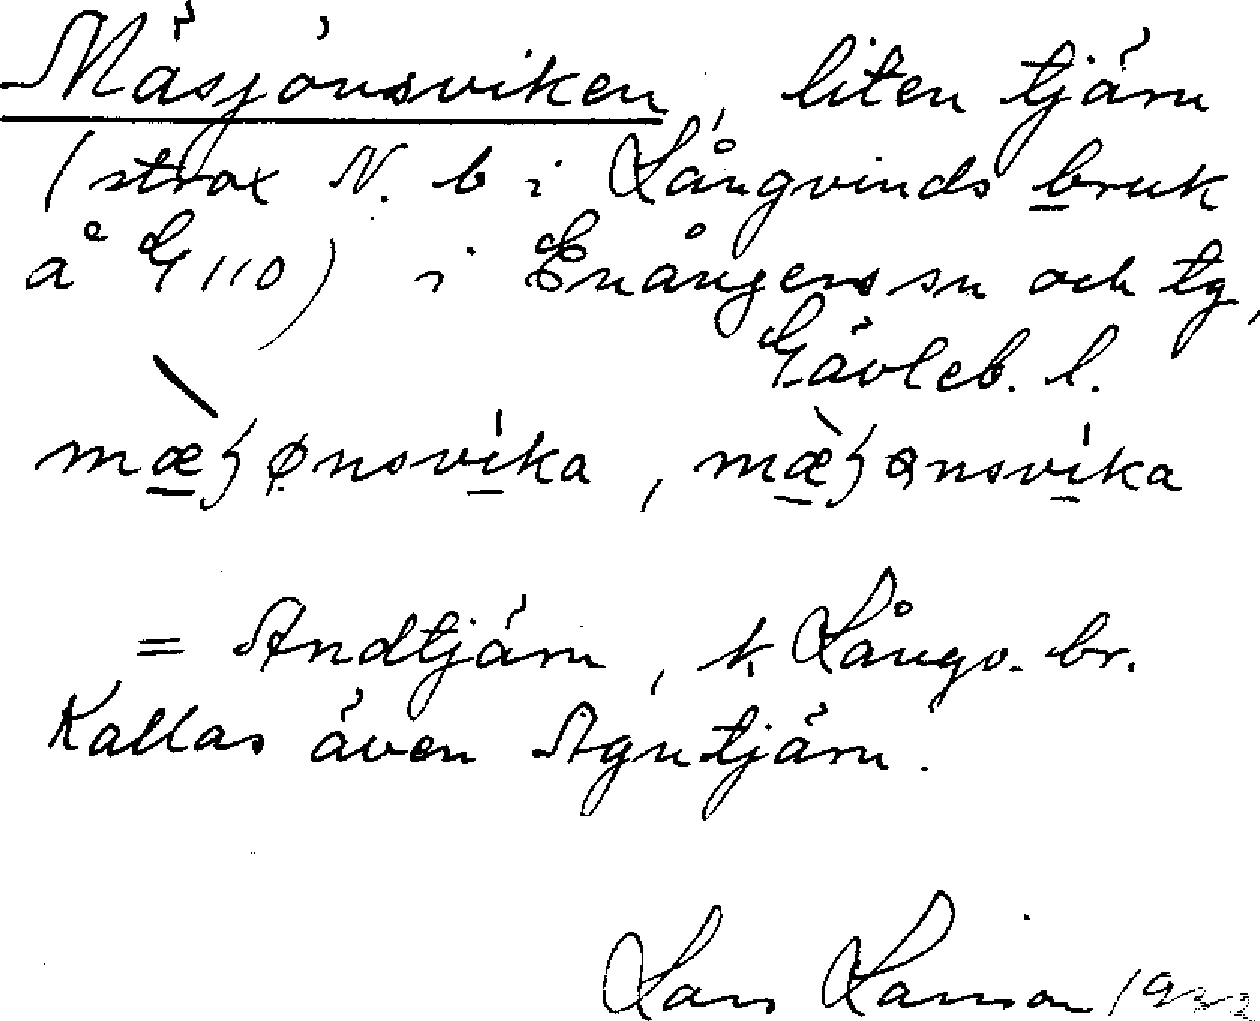 Mäsjönsviken, liten tjärn
(strax N. b i Långvinds bruk
å G 110) i Enångers sn och tg,
Gävleb. l.
= Andtjärn, k Långv. br.
Kallas även Agntjärn.
Lars Larsson